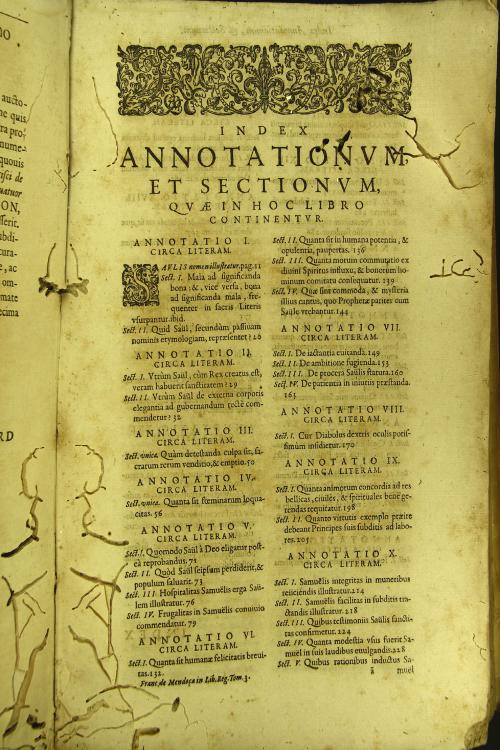 INDEX
ANNOTATIONVM
ET SECTIONVM,
QVÆ IN HOC LIBRO
CONTINENTVR.
ANNOTATIO I.
CIRCA LITERAM.
SAVLIS nomen illustratur. pag. 11
Sect. I. Mala ad significanda
bona: &, vice versa, bona
ad significanda mala, fre-
quenter in sacris Literis
vsurpantur. ibid.
Sect. II. Quid Saül, secundùm passiuam
nominis etymologiam, repræsentet? 26
ANNOTATIO II.
CIRCA LITERAM.
Sect. I. Vtrùm Saül, cùm Rex creatus est,
veram habuerit sanctitatem? 29
Sect. II. Vtrùm Saül de externa corporis
elegantia ad gubernandum rectè com-
mendetur? 32
ANNOTATIO III.
CIRCA LITERAM.
Sect. vnica. Quàm detestanda culpa sit, sa-
crarum rerum venditio, & emptio. 50
ANNOTATIO IV.
CIRCA LITERAM.
Sect. vnica. Quanta sit fœminarum loqua-
citas. 56
ANNOTATIO V.
CIRCA LITERAM.
Sect. I. Quomodo Saül à Deo eligatur post-
eà reprobandus. 71
Sect. II. Quòd Saül seipsum perdiderit, &
populum saluarit. 73
Sect. III Hospitalitas Samuëlis erga Saü-
lem illustratur. 76
Sect. IV. Frugalitas in Samuëlis conuiuio
commendatur. 79
ANNOTATIO VI.
CIRCA LITERAM.
Sect. I. Quanta sit humanæ felicitatis breui-
tas. 132.
Franc. de Mendoça in Lib. Reg. Tom. 3.
Sect. II. Quanta sit in humana potentia, &
opulentia, paupertas. 136
Sect. III. Quanta morum commutatio ex
diuini Spiritus influxu, & bonorum ho-
minum comitatu consequatur. 139
Sect. IV. Quæ sint commoda, & mysteria
illius cantus, quo Prophetæ pariter cum
Saüle vtebantur. 144
ANNOTATIO VII.
CIRCA LITERAM.
Sect. I. De iactantia euitanda. 149
Sect. II. De ambitione fugienda. 153
Sect. III. De procera Saülis statura. 160
Sect. IV. De patientia in iniurias præstanda.
165
ANNOTATIO VIII.
CIRCA LITERAM.
Sect. I. Cur Diabolus dextris oculis potis-
simùm insidietur. 170
ANNOTATIO IX.
CIRCA LITERAM.
Sect. I. Quanta animorum concordia ad res
bellicas, ciuiles, & spirituales benè ge-
rendas requiratur. 198
Sect. II. Quanto virtutis exemplo præire
debeant Principes suis subditis ad labo-
res. 205
ANNOTATIO X.
CIRCA LITERAM.
Sect. I. Samuëlis integritas in muneribus
reiiciendis illustratur. 214
Sect. II. Samuëlis facilitas in subditis tra-
ctandis illustratur. 218
Sect. III. Quibus testimoniis Saülis sancti-
tas confirmetur. 224
Sect. IV. Quanta modestia vsus fuerit Sa-
muël in suis laudibus euulgandis. 228
Sect. V. Quibus rationibus inductus Sa-
ã muël